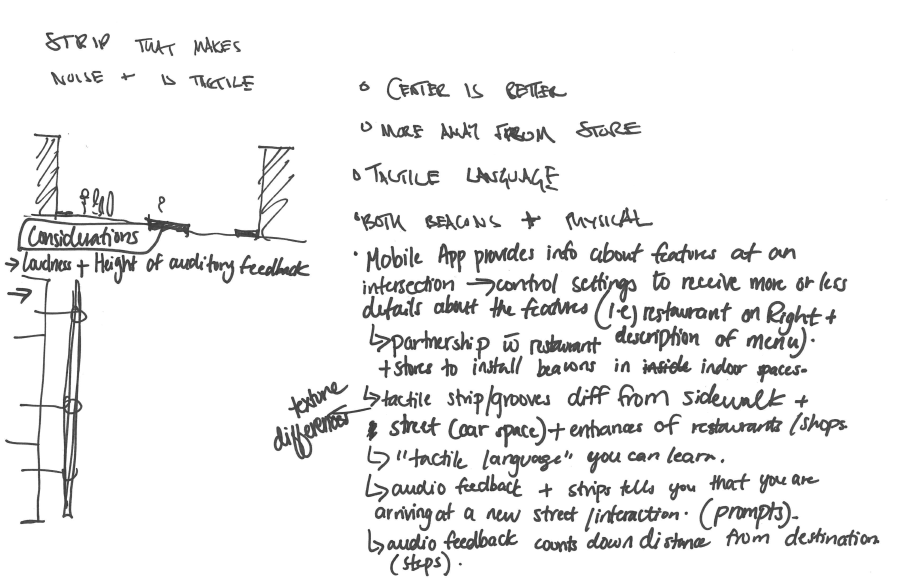 STRIP THAT MAKES
NOISE + IS TACTILE
Considerations
→ Loudness + Height of auditory feedback
• CENTER IS BETTER
• MORE AWAY FROM STORE
• TACTILE LANGUAGE
• BOTH BEACONS + PHYSICAL
• Mobile App provides info about features at an
intersection → control settings to receive more or less
details about the features (i.e) restaurant on Right +
↳ partnership w restaurant description of menu).
+ stores to install beacons in inside indoor spaces.
texture
differences
↳ tactile strip/grooves diff from sidewalk +
street (car space) + entrances of restaurants/shops
↳ "tactile language" you can learn.
↳ audio feedback + strips tells you that you are
arriving at a new street/interaction. (prompts).
↳ audio feedback counts down distance from destination
(steps).